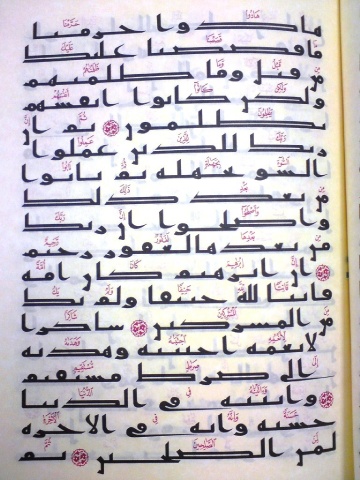 هادوا حرمنا
ما قصصنا عليك
من قبل وما ظلمنهم
ولكن كانوا انفسهم
يظلمون ثم ان
ربك للذين عملوا
السو بجهله ثم تابوا
من بعد ذلك
واصلحوا ان ربك
من بعدها لغفور رحيم
ان ابرهيم كان امه
قانتا لله حنيفا ولم يك
من المشركين شاكرا
لانعمه اجتبيه وهديه
الى صرط مستقيم
واتينه في الدنيا
حسنه وانه في الاخره
لمن الصلحين ثم